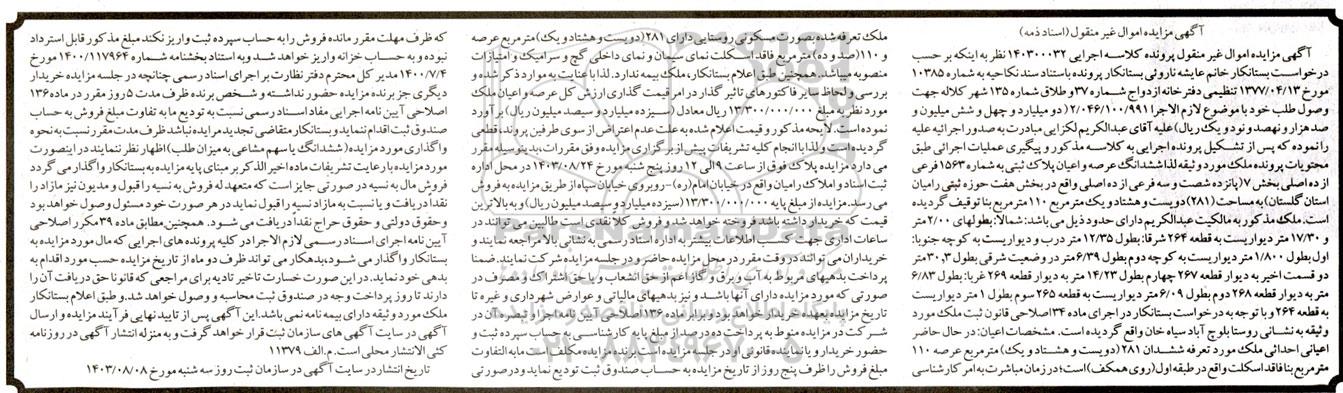 آگهی مزایده اموال غیر منقول (اسناد ذمه)
آگهی مزایده اموال غیر منقول پرونده کلاسه اجرایی ۱۴۰۳۰۰۰۳۲ نظر به اینکه بر حسب
درخواست بستانکار خانم عایشه ناروئی بستانکار پرونده باستناد سند نکاحیه به شماره ۱۰۳۸۵
مورخ ۱۳۷۷/۰۴/۱۳ تنظیمی دفترخانه ازدواج شماره ۳۷ و طلاق شماره ۱۳۵ شهر کلاله جهت
وصول طلب خود با موضوع لازم الاجرا ۲/۰۴۶/۱۰۰/۹۹۱ (دو میلیارد و چهل و شش میلیون و
صد هزار و نهصد و نود و یک ریال) علیه آقای عبدالکریم لکزایی مبادرت به صدور اجرائیه علیه
را نموده که پس از تشکیل پرونده اجرایی به کلاسه مذکور و پیگیری عملیات اجرائی طبق
محتویات پرونده ملک مورد وثیقه لذا ششدانگ عرصه و اعیان پلاک ثبتی به شماره ۱۵۶۳ فرعی
از ده اصلی بخش ۷ (پانزده شصت و سه فرعی از ده اصلی واقع در بخش هفت حوزه ثبتی رامیان
گلستان) به مساحت (۲۸۱) دویست و هشتاد و یک متر مربع ۱۱۰ متر مربع بنا توقیف گردیده
است. ملک مذکور به مالکیت عبدالکریم دارای حدود ذیل می باشد: شمالا: بطولهای ۲/۰۰ متر
و ۱۷/۳۰ متر دیواریست به قطعه ۲۶۴ شرقا: بطول ۱۲/۳۵ متر درب و دیواریست به کوچه جنوبا:
اول بطول ۱/۸۰۰ متر دیواریست به کوچه دوم بطول ۶/۳۹ متر در وضعیت شرقی بطول ۳۰,۳ متر
دو قسمت اخیر به دیوار قطعه ۲۶۷ چهارم بطول ۱۴/۲۳ متر به دیوار قطعه ۲۶۹ غربا: بطول ۶/۸۳
متر به دیوار قطعه ۲۶۸ دوم بطول ۶/۰۹ متر دیواریست به قطعه ۲۶۵ سوم بطول ۱ متر دیواریست
به قطعه ۲۶۴ و با توجه به درخواست بستانکار در اجرای ماده ۳۴ اصلاحی قانون ثبت ملک مورد
وثیقه به نشانی روستا بلوچ آباد سیاه خان واقع گردیده است. مشخصات اعیان: در حال حاضر
اعیانی احداثی ملک مورد تعرفه ششدان ۲۸۱ (دویست و هشتاد و یک) متر مربع عرصه ۱۱۰
متر مربع بنا فاقد اسکلت واقع در طبقه اول (روی همکف) است؛ در زمان مباشرت به امر کارشناسی
ملک تعرفه شده بصورت مسکونی روستایی دارای ۲۸۱ (دویست و هشتاد و یک) متر مربع عرصه
و ۱۱۰ (صد و ده) متر مربع فاقد اسکلت نمای سیمان و نمای داخلی گچ و سرامیک و امتیازات
منصوبه میباشد. همچنین طبق اعلام بستانکار، ملک بیمه ندارد. لذا با عنایت به موارد ذکر شده و
بررسی و لحاظ سایر فاکتورهای تاثیر گذار در امر قیمت گذاری ارزش کل عرصه و اعیان ملک
مورد نظر به مبلغ ۱۳/۳۰۰/۰۰۰/۰۰۰ ریال معادل (سیزده میلیارد و سیصد میلیون ریال) برآورد
نموده است. لایحه مذکور و قیمت اعلام شده به علت عدم اعتراض از سوی طرفین پرونده، قطعی
گردیده است و لذا با انجام کلیه تشریفات پیش از برگزاری مزایده وفق مقررات، بدینوسیله مقرر
می دارد مزایده پلاک فوق از ساعت ۹ الی ۱۲ روز پنج شنبه مورخ ۱۴۰۳/۰۸/۲۴ در محل اداره
ثبت اسناد و املاک رامیان واقع در خیابان امام (ره) - روبروی خیابان سپاه از طریق مزایده به فروش
می رسد. مزایده از مبلغ پایه ۱۳/۳۰۰/۰۰۰/۰۰۰ (سیزده میلیارد و سیصد میلیون ریال) و به بالاترین
قیمت که خریدار داشته باشد فروخته خواهد شد و فروش کلا نقدی است طالبین می توانند در
ساعات اداری جهت کسب اطلاعات بیشتر به اداره اسناد رسمی به نشانی بالا مراجعه نمایند و
خریداران می توانند در وقت مقرر در محل مزایده حاضر و در جلسه مزایده شرکت نمایند. ضمنا
پرداخت بدهیهای مربوط به آب، برق و گاز اعم از حق انشعاب و یا حق اشتراک و مصرف در
صورتی که مورد مزایده دارای آنها باشد و نیز بدهیهای مالیاتی و عوارض شهرداری و غیره تا
تاریخ مزایده بعهده خریدار خواهد بود و برابر ماده ۱۳۶ اصلاحی آیین نامه اجرا و تبصره آن در
شرکت در مزایده منوط به پرداخت ده درصد از مبلغ پایه کارشناسی به حساب سپرده ثبت و
حضور خریدار و یا نماینده قانونی او در جلسه مزایده است برنده مزایده مکلف است مابه التفاوت
مبلغ فروش را ظرف پنج روز از تاریخ مزایده به حساب صندوق ثبت تودیع نماید و در صورتی
که ظرف مهلت مقرر مانده فروش را به حساب سپرده ثبت واریز نکند مبلغ مذکور قابل استرداد
نبوده و به حساب خزانه واریز خواهد شد و به استناد بخشنامه شماره ۱۴۰۰/۱۱۷۹۶۴ مورخ
۱۴۰۰/۷/۴ مدیر کل محترم دفتر نظارت بر اجرای اسناد رسمی چنانچه در جلسه مزایده خریدار
دیگری جز برنده مزایده حضور نداشته و شخص برنده ظرف مدت ۵ روز مقرر در ماده ۱۳۶
اصلاحی آیین نامه اجرایی مفاد اسناد رسمی نسبت به تودیع مابه تفاوت مبلغ فروش به حساب
صندوق ثبت اقدام ننماید و بستانکار متقاضی تجدید مزایده نباشد ظرف مدت مقرر نسبت به نحوه
واگذاری مورد مزایده (ششدانگ یا سهم مشاعی به میزان طلب) اظهار نظر ننمایند در اینصورت
مورد مزایده با رعایت تشریفات ماده اخیر الذکر بر مبنای پایه مزایده به بستانکار واگذار می گردد
فروش مال به نسیه در صورتی جایز است که متعهد له فروش به نسیه را قبول و مدیون نیز مازاد را
نقدا دریافت و یا نسبت به مازاد نسیه را قبول نماید در هر صورت خود مسئول وصول خواهد بود
و حقوق دولتی و حقوق حراج نقدا دریافت می شود. همچنین مطابق ماده ۳۹ مکرر اصلاحی
آیین نامه اجرای اسناد رسمی لازم الاجرا در کلیه پرونده های اجرایی که مال مورد مزایده به
بستانکار واگذار می شود، بدهکار می تواند ظرف دو ماه از تاریخ مزایده حسب مورد اقدام به
بدهی خود نماید. در این صورت خسارت تاخیر تادیه برای مراجعی که قانونا حق دریافت آن را
دارند تا روز پرداخت وجه در صندوق ثبت محاسبه و وصول خواهد شد. و طبق اعلام بستانکار
ملک مورد وثیقه دارای بیمه نامه نمی باشد. این آگهی پس از تایید نهایی فرآیند مزایده و ارسال
آگهی در سایت آگهی های سازمان ثبت قرار خواهد گرفت و به منزله انتشار آگهی در روزنامه
کثیر الانتشار محلی است. م.الف ۱۱۳۷۹
تاریخ انتشار در سایت آگهی در سازمان ثبت روز سه شنبه مورخ ۱۴۰۳/۰۸/۰۸
ParsNamadData
۰۲۱-۸۸۳۴۹۶۷۰-۵